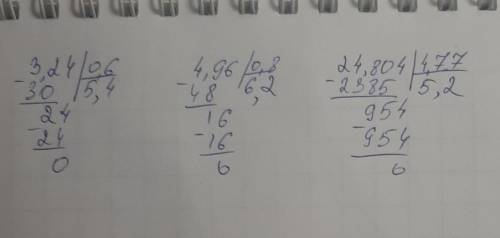 3,24 0,6
- 30 5,4
24
- 24
0
4,96 0,8
- 48 6,2
16
- 16
0
24,804 4,77
- 2385 5,2
954
- 954
0